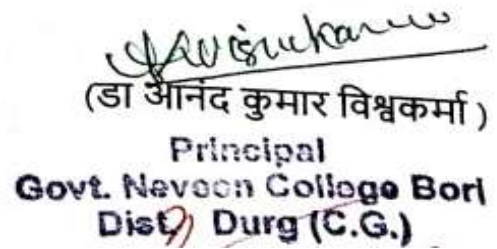 (डा आनंद कुमार विश्वकर्मा )
Principal
Govt. Naveen College Bori
Dist. Durg (C.G.)